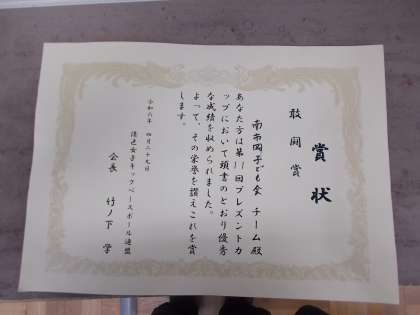 賞状
敢闘賞
南市岡子ども会 チーム殿
あなた方は第11回プレズントカ
ップにおいて頭書のとおり優秀
な成績を収められました。
よって、その栄誉を讃えこれを賞
します。
令和六年 四月二十七日
港区女子キックベースボール連盟
会長 竹ノ下 学